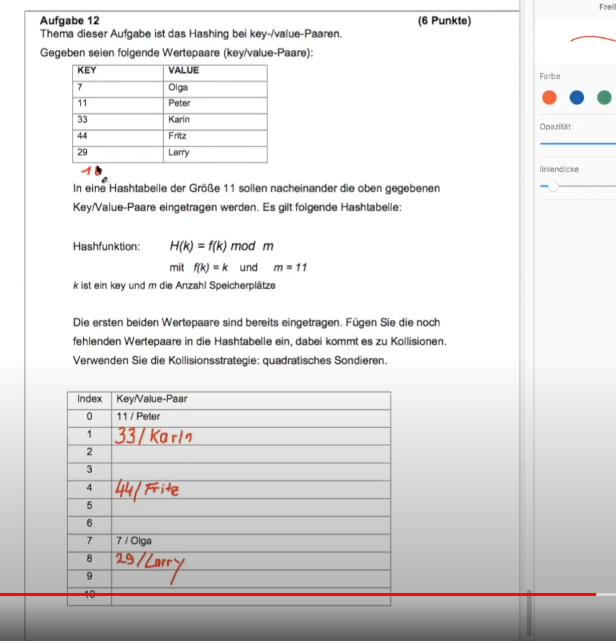 Aufgabe 12 (6 Punkte)
Thema dieser Aufgabe ist das Hashing bei key-/value-Paaren.
Gegeben seien folgende Wertepaare (key/value-Paare):
KEY VALUE
7 Olga
11 Peter
33 Karin
44 Fritz
29 Larry
In eine Hashtabelle der Größe 11 sollen nacheinander die oben gegebenen
Key/Value-Paare eingetragen werden. Es gilt folgende Hashtabelle:
Hashfunktion: H(k) = f(k) mod m
mit f(k) = k und m = 11
k ist ein key und m die Anzahl Speicherplätze
Die ersten beiden Wertepaare sind bereits eingetragen. Fügen Sie die noch
fehlenden Wertepaare in die Hashtabelle ein, dabei kommt es zu Kollisionen.
Verwenden Sie die Kollisionsstrategie: quadratisches Sondieren.
Index Key/Value-Paar
0 11 / Peter
1 33/Karin
2
3
4 44/Fritz
5
6
7 7 / Olga
8 29/Larry
9
10
Frei
Farbe
Opazität
liniendicke